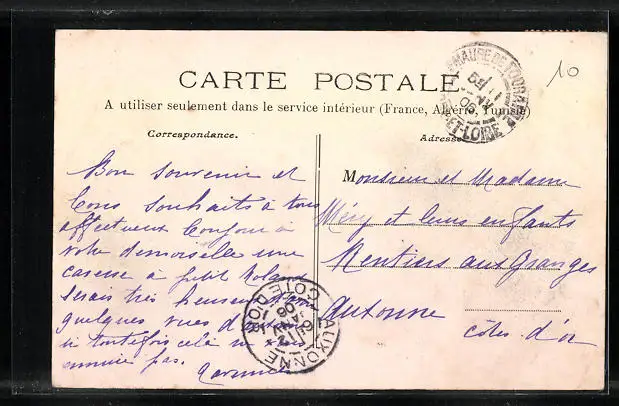 CARTE POSTALE
A utiliser seulement dans le service intérieur (France, Algérie, Tunisie)
Correspondance.
Adresse
10
Bon souvenir et
bons souhaits à tous
affectueux bonjour à
votre demoiselle une
caresse à petit Roland
serais très heureux
quelques vues
si toutefois celà ne vous
ennuie pas.
Monsieur et Madame
Méry et leurs enfants
Rentiers aux Granges
Auxonne
côtes d'or
STE MAURE DE TOURAINE
ET-LOIRE
AUXONNE
COTE D'OR